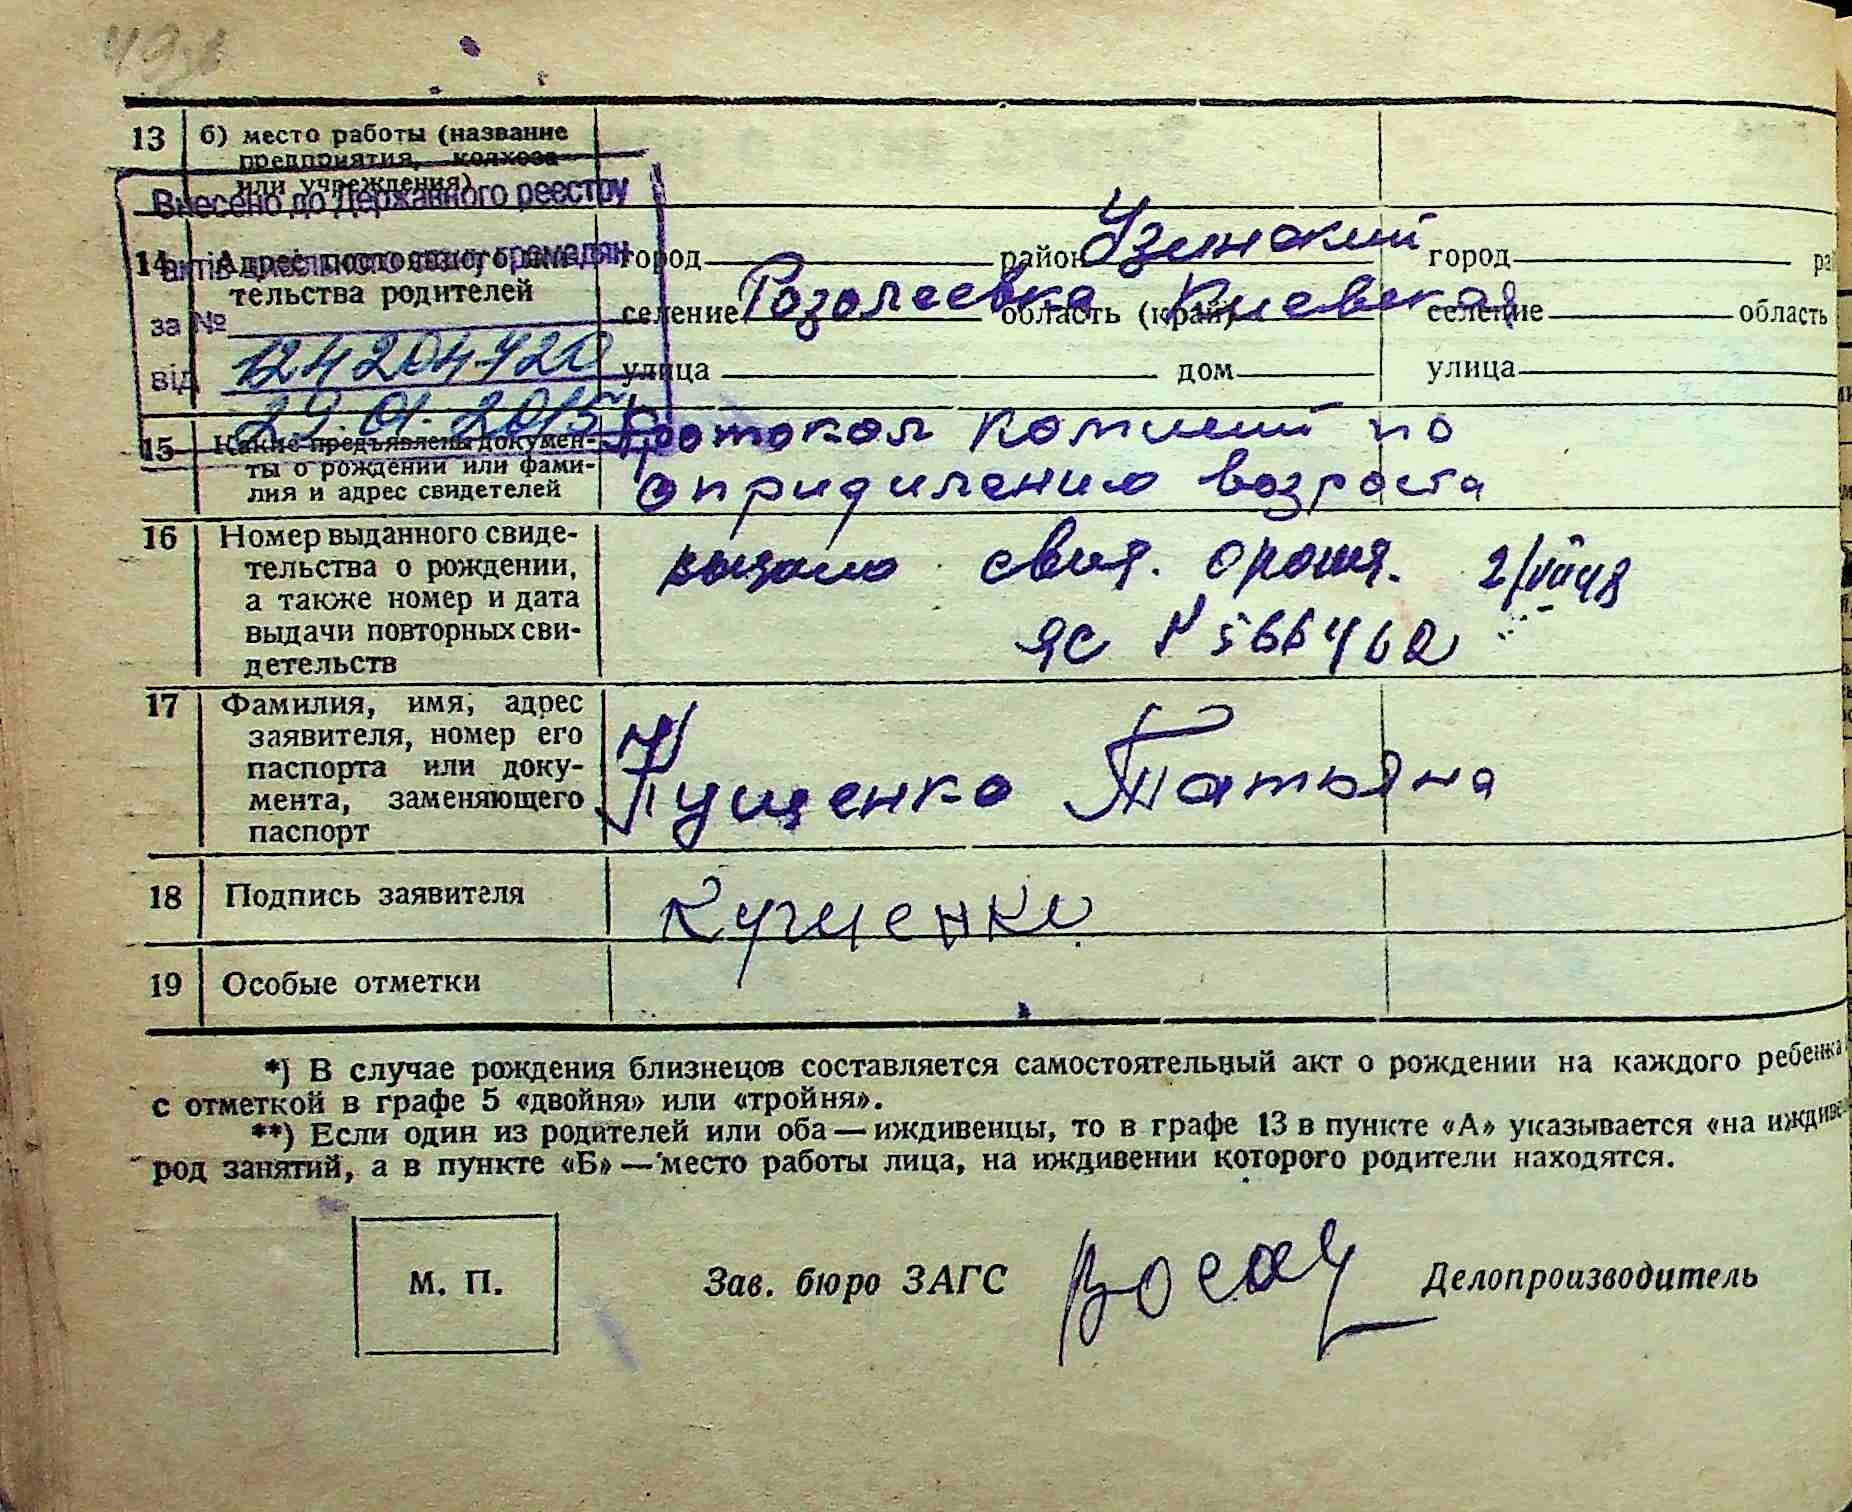 13 б) место работы (название
предприятия, колхоза
или учреждения)
Внесено до Державного реестру
громадян
за №
124204420
від 29.01.2015
14 Адрес постоянного жи-
тельства родителей
город район Узинский город
селение Розалеевка область (край) Киевская селение область
улица дом улица
15 Какие предъявлены докумен-
ты о рождении или фами-
лия и адрес свидетелей
Протокол комисий по
опридилению возраста
16 Номер выданного свиде-
тельства о рождении,
а также номер и дата
выдачи повторных сви-
детельств
выдано свид. о рожд. 2/VIII 48
ЯС № 566462
17 Фамилия, имя, адрес
заявителя, номер его
паспорта или доку-
мента, заменяющего
паспорт
Кущенко Татьяна
18 Подпись заявителя
Кущенко
19 Особые отметки
*) В случае рождения близнецов составляется самостоятельный акт о рождении на каждого ребенка
с отметкой в графе 5 «двойня» или «тройня».
**) Если один из родителей или оба — иждивенцы, то в графе 13 в пункте «А» указывается «на иждиве
род занятий, а в пункте «Б» — место работы лица, на иждивении которого родители находятся.
М. П. Зав. бюро ЗАГС Делопроизводитель